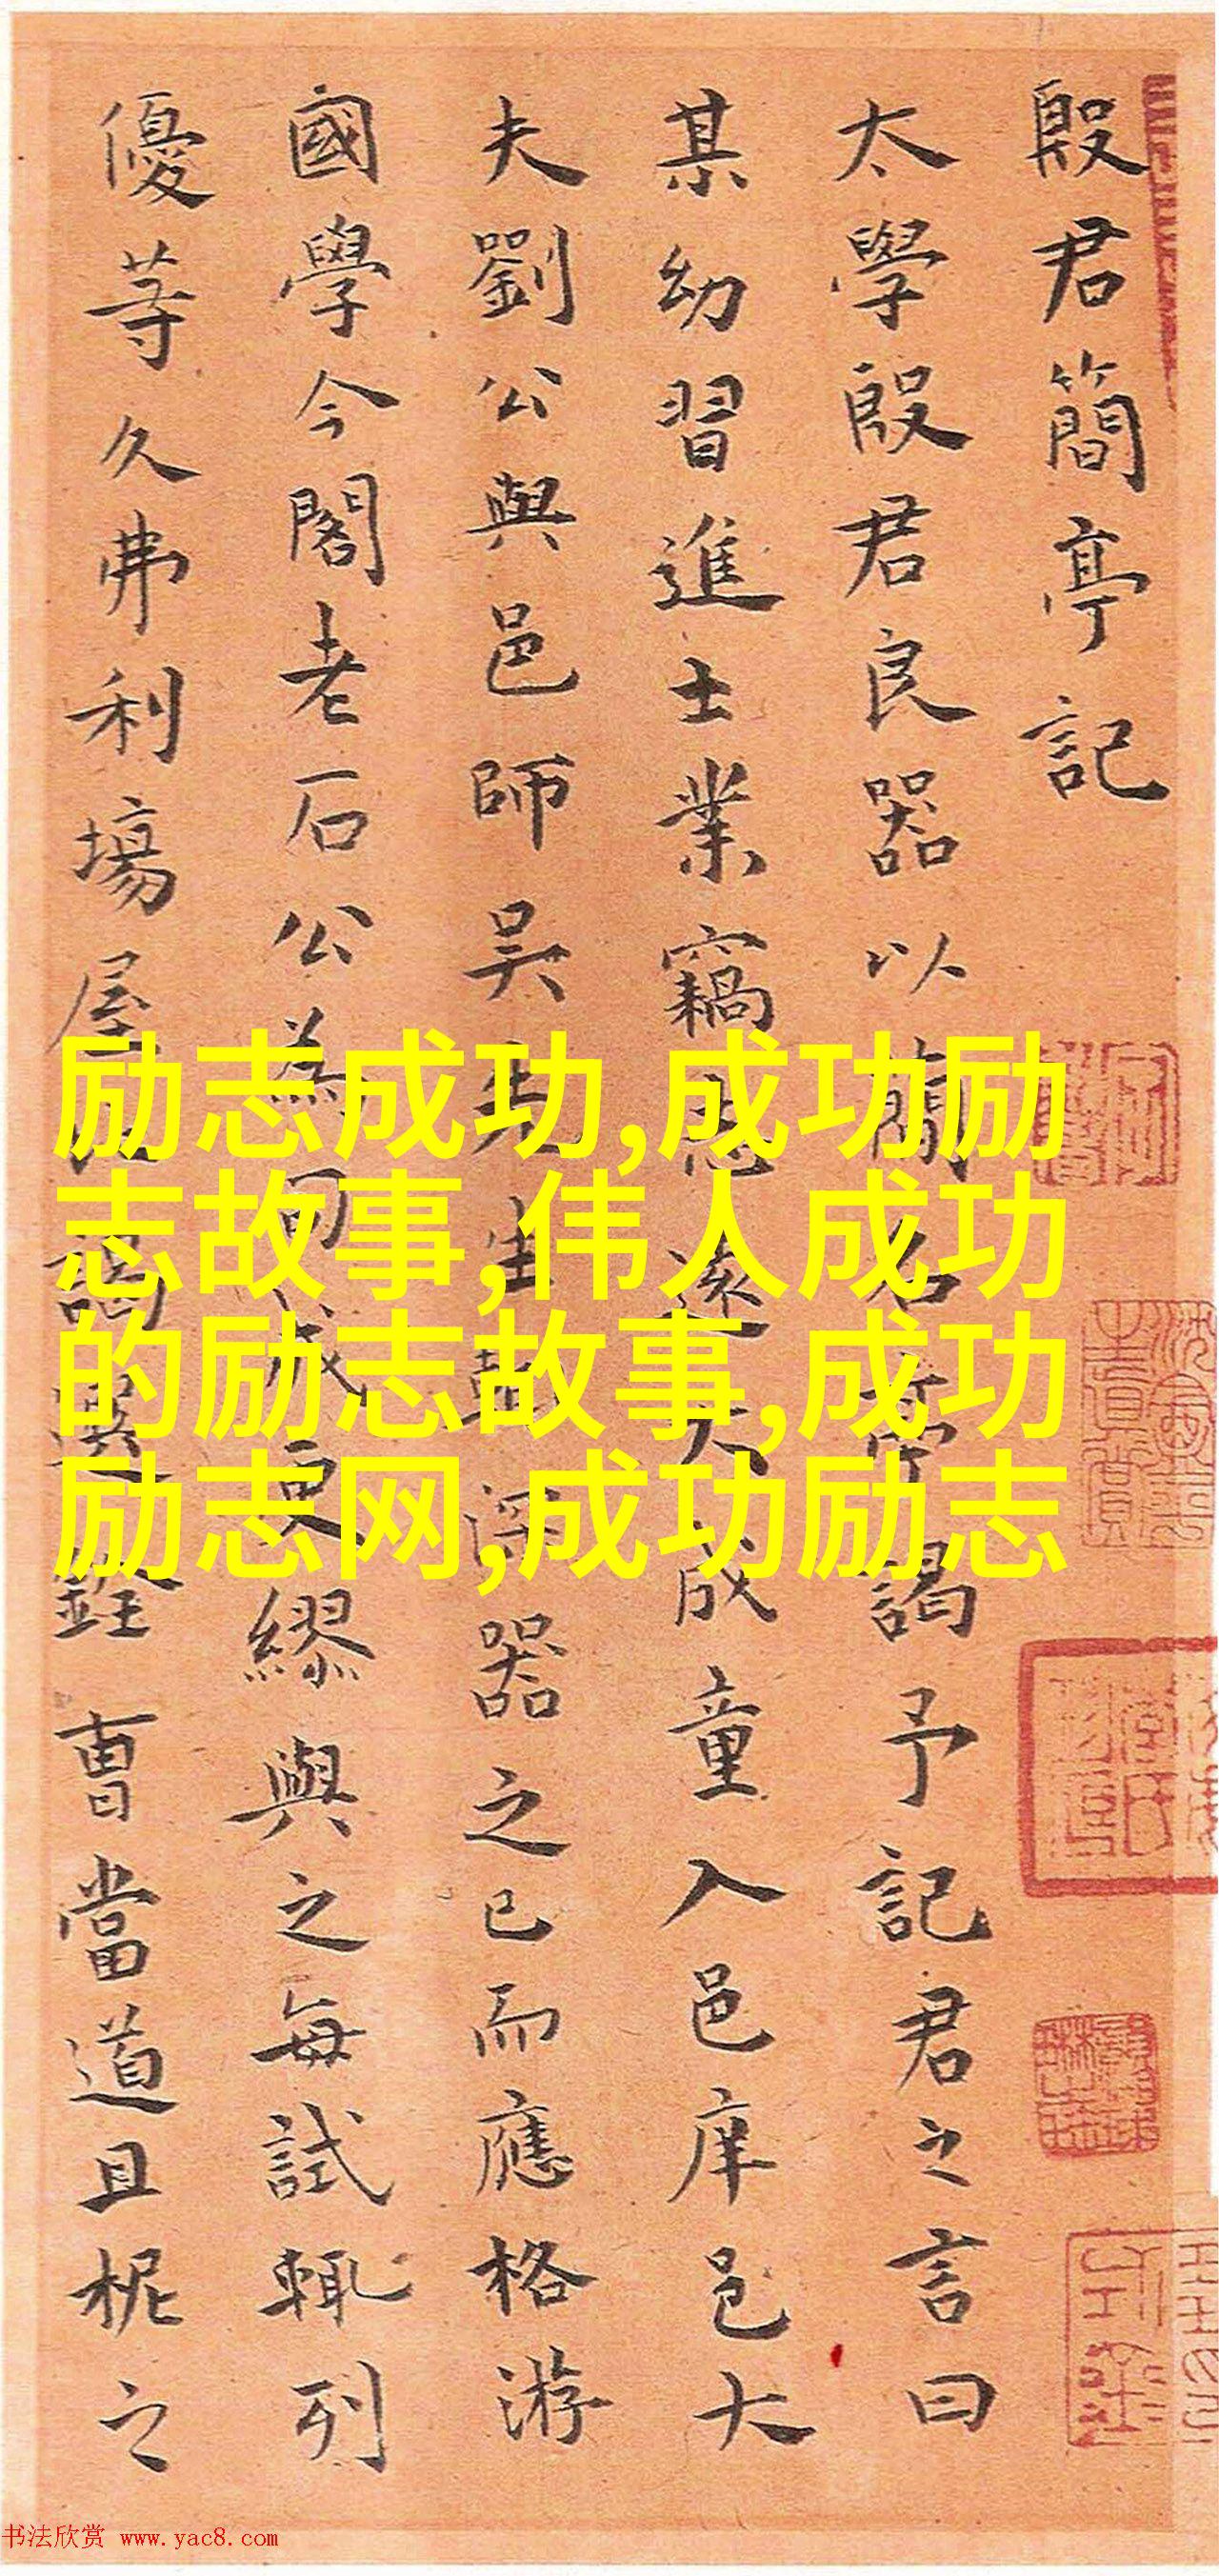 殷君簡亭記
太學殷君良器以簡名亭謁予記君之言曰
某幼習進士業竊志遠大成童入邑庠邑大
夫劉公與邑師吳先生輒深器之已而應格游
國學今閣老石公為司成更繆與之每試輒列
優等久弗利場屋謁選銓曹當道且柅之
励志成功,成功励
志故事,伟人成功
的励志故事,成功
励志网,成功励志
书法欣赏 www.yac8.com